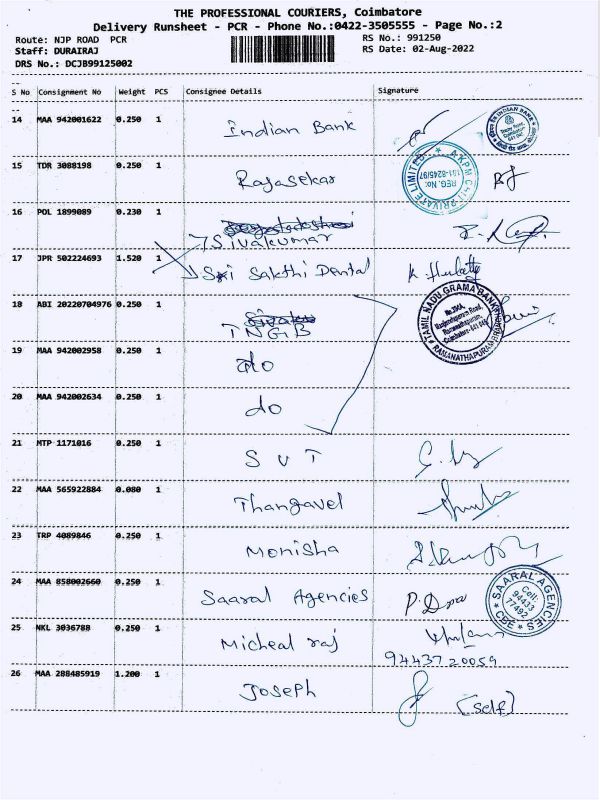 THE PROFESSIONAL COURIERS, Coimbatore
Delivery Runsheet - PCR - Phone No.:0422-3505555 - Page No.:2
Route: NJP ROAD PCR RS No.: 991250
Staff: DURAIRAJ RS Date: 02-Aug-2022
DRS No.: DCJB99125002
S No Consignment No Weight PCS Consignee Details Signature
14 MAA 942001622 0.250 1 Indian Bank
INDIAN BANK
15 TDR 3088198 0.250 1 Rajasekar
A.K.P.M CHIT PRIVATE LIMITED
REG.No:
181-8245/97
16 POL 1899089 0.230 1
Sivakumar
17 JPR 502224693 1.520 1 Sri Sakthi Dental
18 ABI 20220704976 0.250 1
TNGB
TAMIL NADU GRAMA BANK
Ramanathapuram,
RAMANATHAPURAM BRANCH
19 MAA 942002958 0.250 1 do
20 MAA 942002634 0.250 1 do
21 MTP 1171016 0.250 1 S V T
22 MAA 565922884 0.080 1 Thangavel
23 TRP 4089846 0.250 1 Monisha
24 MAA 858002660 0.250 1 Saaral Agencies
SAARAL AGENCIES
Cell:
94433
77492
CBE
25 NKL 3036788 0.250 1 Micheal raj
9443720059
26 MAA 288485919 1.200 1 Joseph [Self]